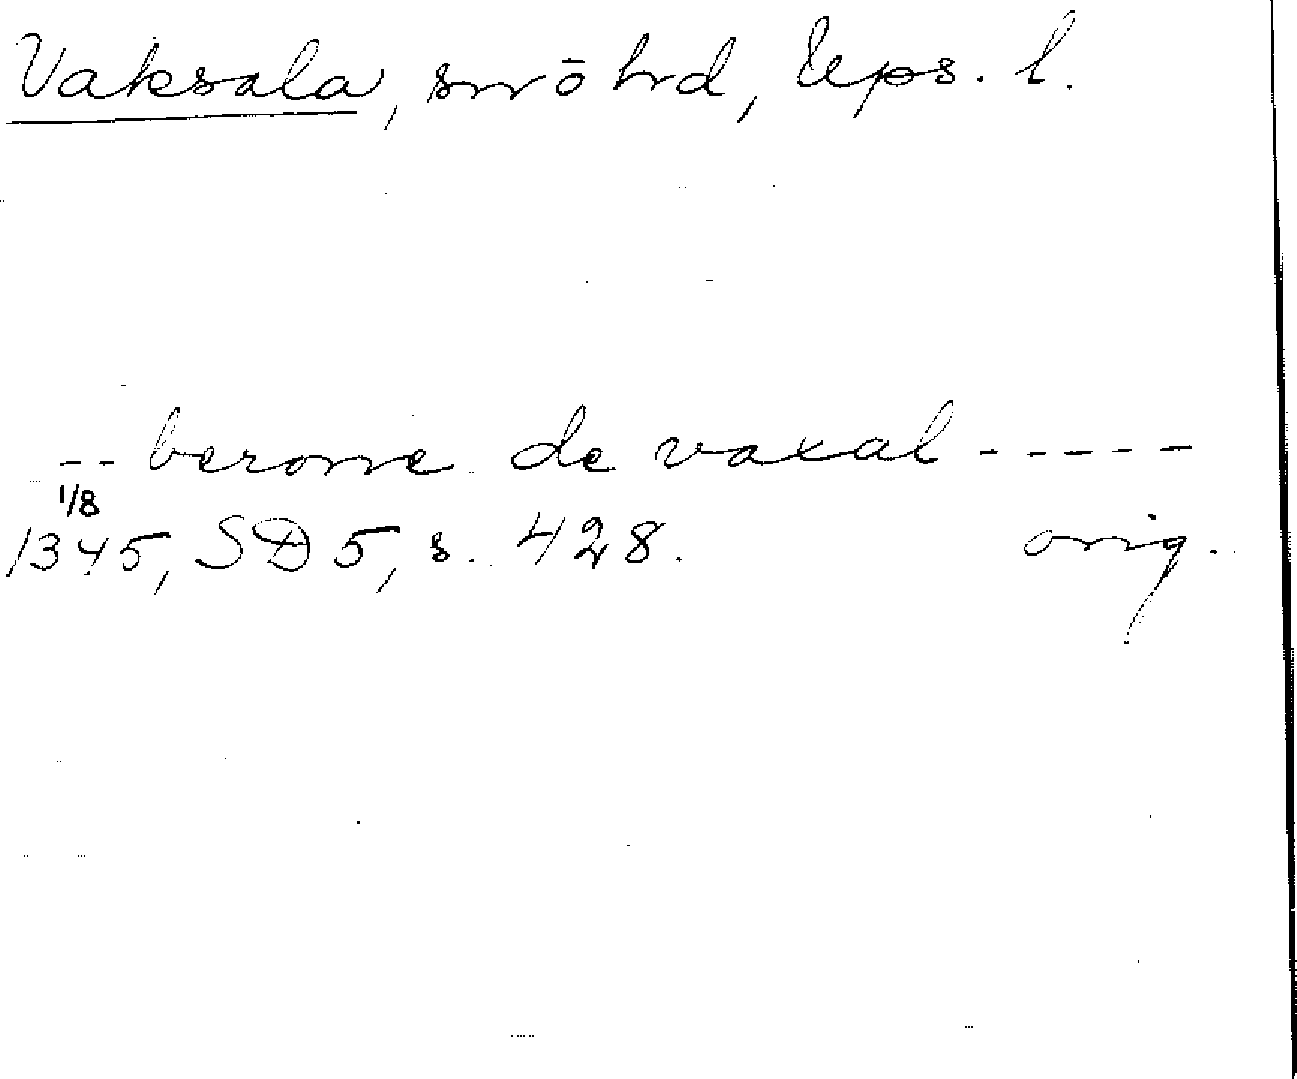 Vaksala, sn o hd, Upps. l.
-- berone de vaxal -----
1/8
1345, SD 5, s. 428. orig.